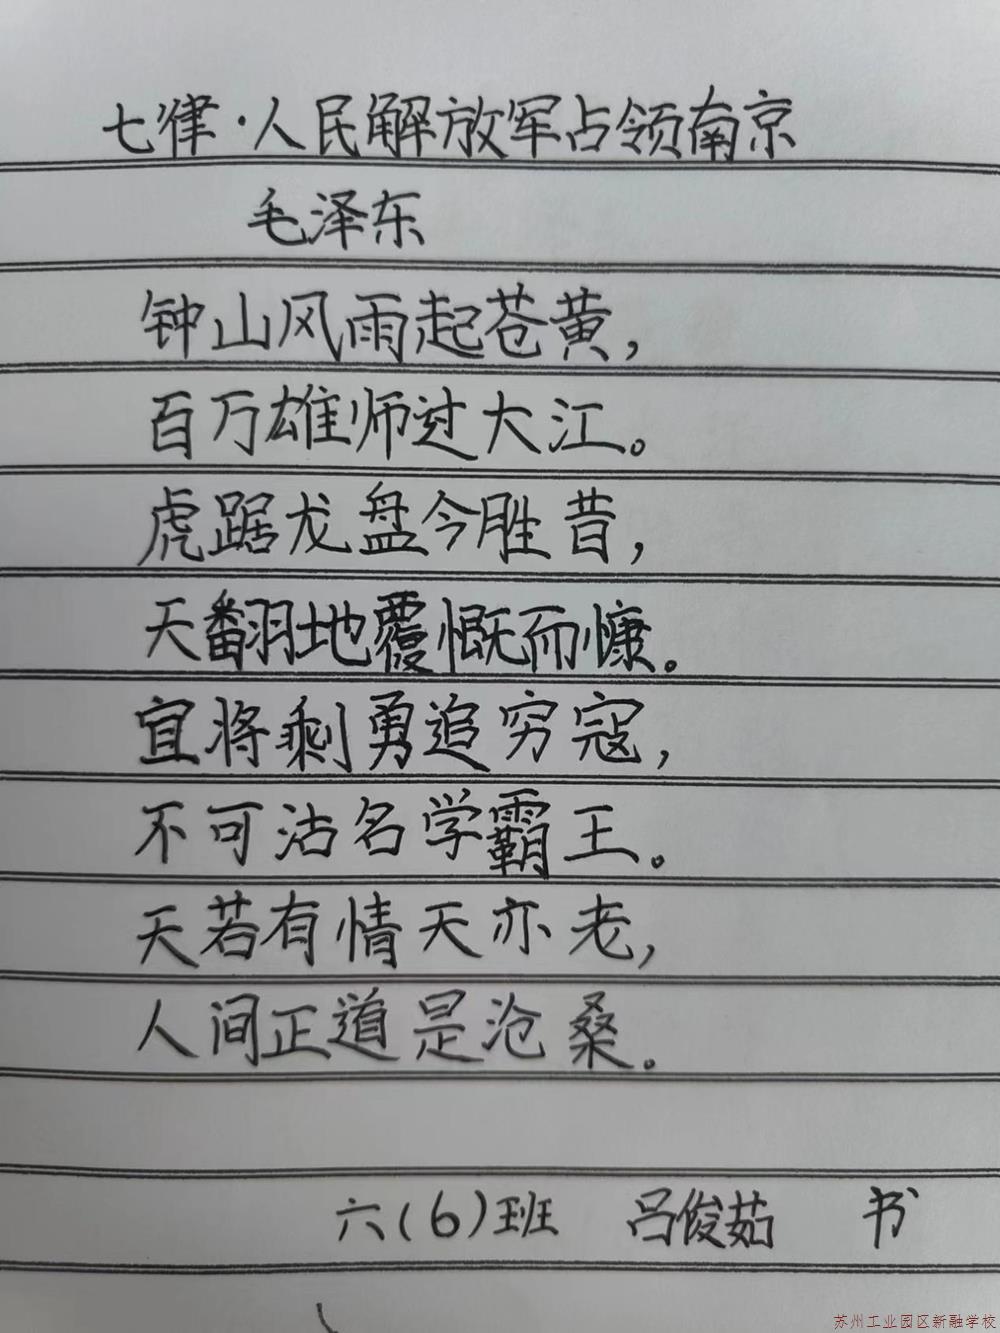 七律·人民解放军占领南京
毛泽东
钟山风雨起苍黄,
百万雄师过大江。
虎踞龙盘今胜昔,
天翻地覆慨而慷。
宜将剩勇追穷寇,
不可沽名学霸王。
天若有情天亦老,
人间正道是沧桑。
六(6)班 吕俊茹 书
苏州工业园区新融学校